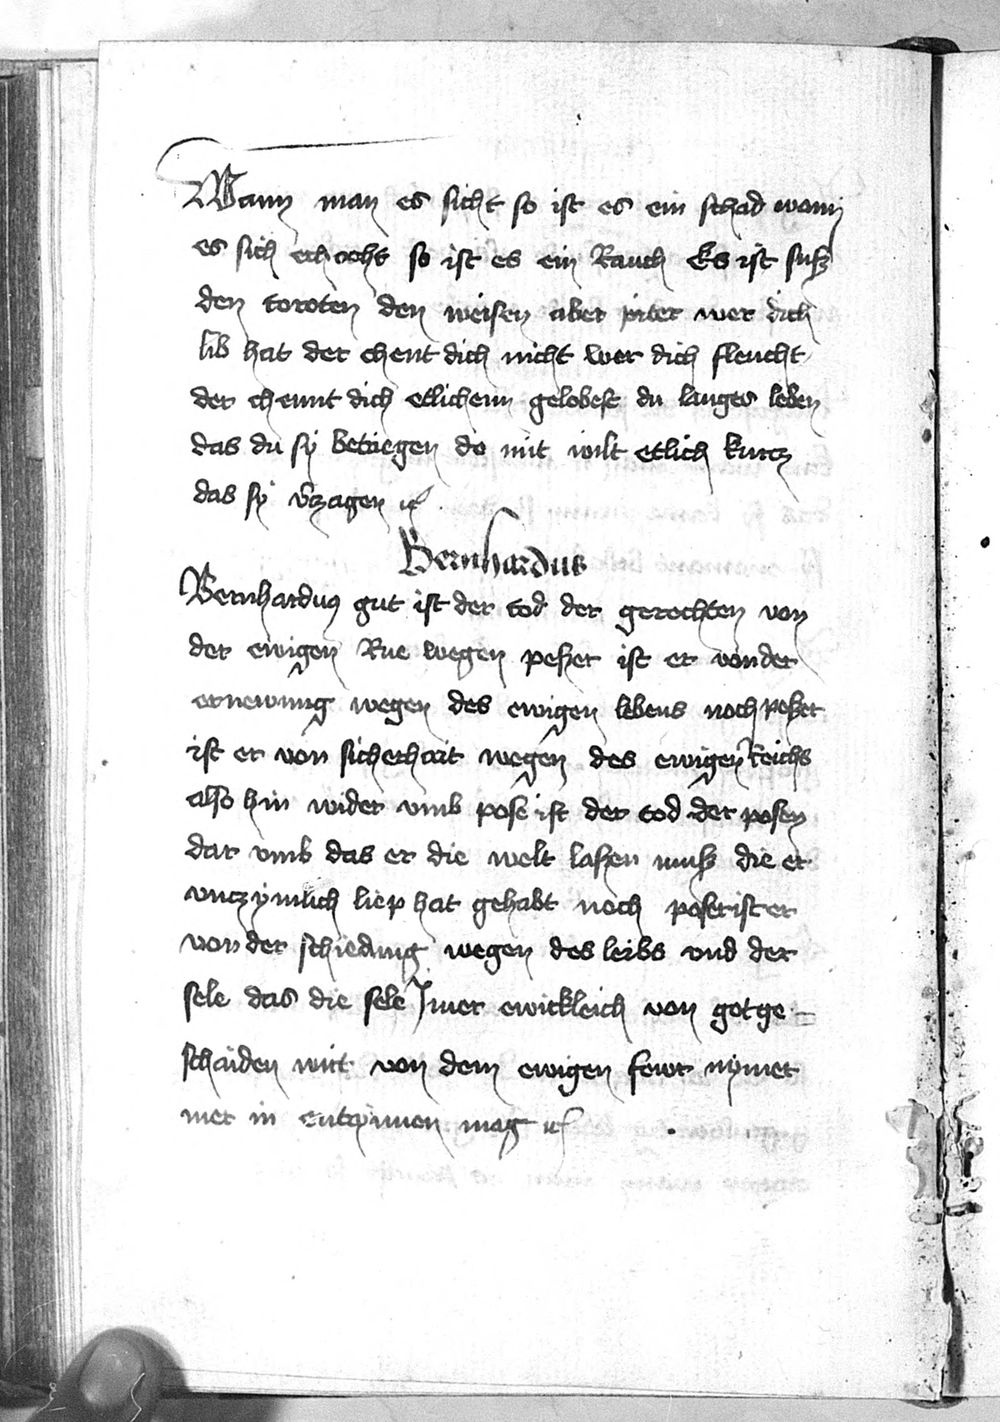 Wann man es sicht so ist es ein schad wann
es sich erhocht so ist es ein Rauch Es ist suß
den toroten den weisen aber piter wer dich
lib hat der chent dich nicht wer dich fleucht
der chennt dich etlichenn gelobest du langes leben
das du sy betriegen do mit wilt etlich kurcz
das sy vʼzagen ꝛc
Bernhardus
Bernhardus gut ist der tod der gerechten von
der ewigen Rue wegen peßer ist er von der
ernewung wegen des ewigen lebens noch peßer
ist er von sicherhait wegen des ewigen Reichs
also hin wider vmb poſe ist der tod der posen
dar vmb das er die welt laßen muß die er
vnczymlich liep hat gehabt noch poser ist er
von der schiedung wegen des leibs vnd der
sele das die sele Imer ewickleich von got ge-
schaiden wirt von dem ewigen fewr nymer
mer in entrynnen mag ꝛc